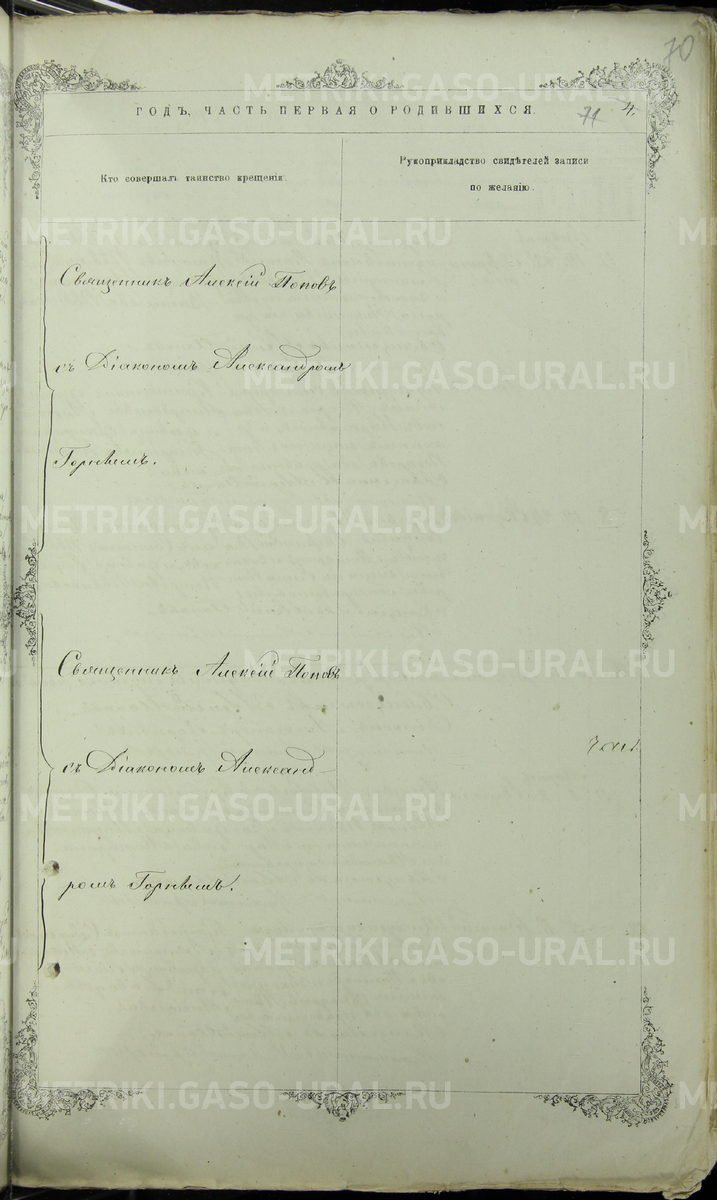 70
ГОДЪ, ЧАСТЬ ПЕРВАЯ О РОДИВШИХСЯ.
71 4.
Кто совершалъ таинство крещенія.
Рукоприкладство свидѣтелей записи
по желанію.
Священникъ Алексій Поповъ
съ Діакономъ Александромъ
Горнымъ.
Священникъ Алексій Поповъ
съ Діакономъ Александ-
ромъ Горнымъ.
METRIKI.GASO-URAL.RU